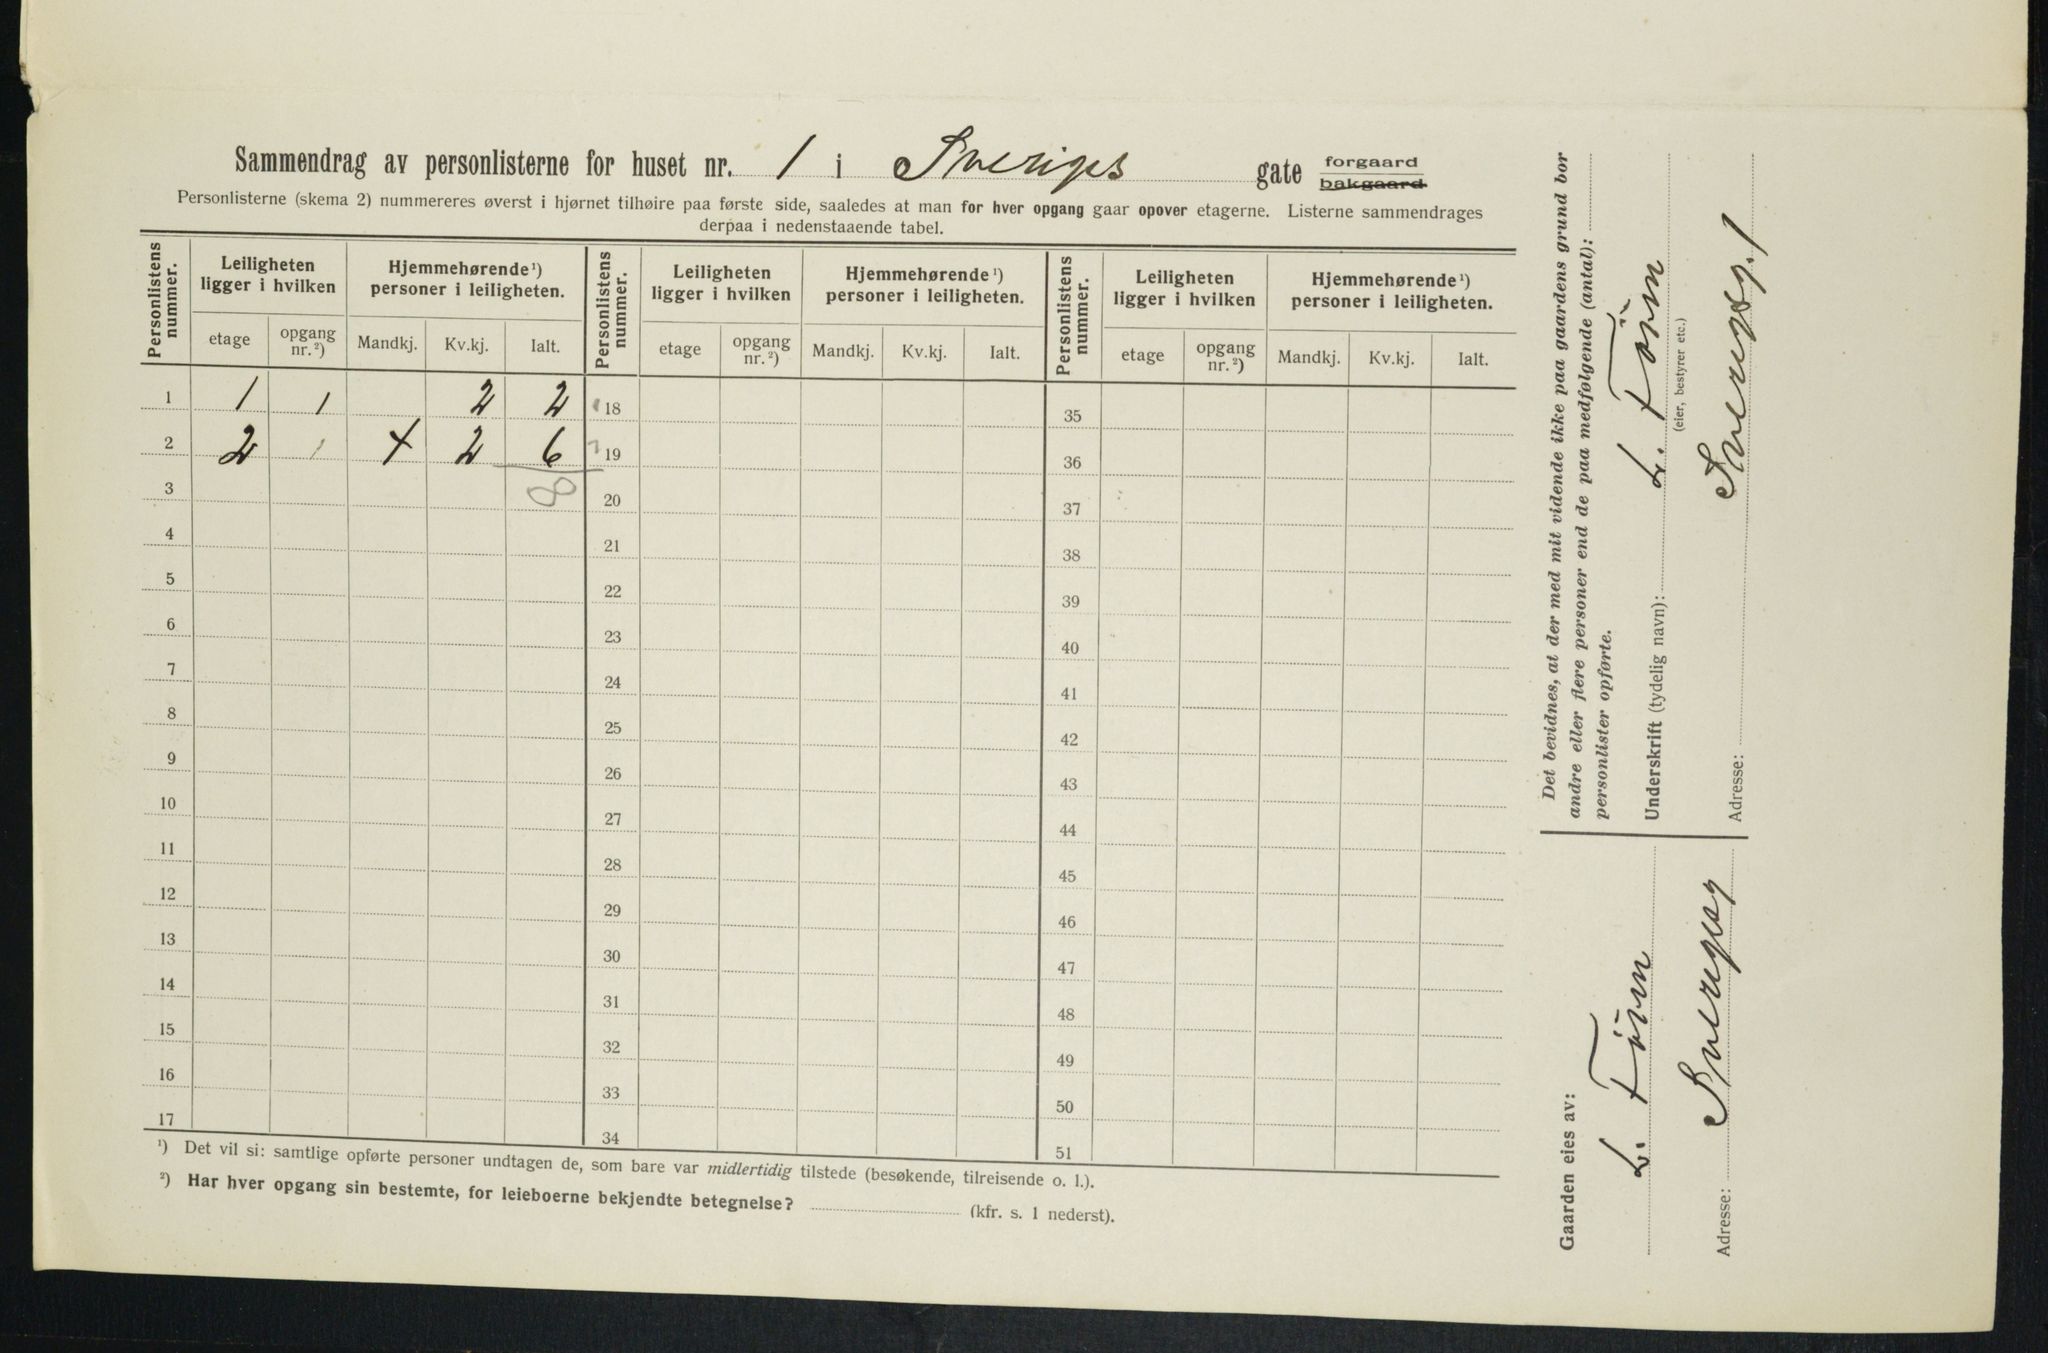 Sammendrag av personlisterne for huset nr. 1 i Sveriges gate forgaard
bakgaard
Personlisterne (skema 2) nummereres øverst i hjørnet tilhøire paa første side, saaledes at man for hver opgang gaar opover etagerne. Listerne sammendrages
derpaa i nedenstaaende tabel.
Personlistens nummer. Leiligheten ligger i hvilken Hjemmehørende ¹) personer i leiligheten. Personlistens nummer. Leiligheten ligger i hvilken Hjemmehørende ¹) personer i leiligheten. Personlistens nummer. Leiligheten ligger i hvilken Hjemmehørende ¹) personer i leiligheten.
etage opgang nr. ²) Mandkj. Kv.kj. Ialt. etage opgang nr. ²) Mandkj. Kv.kj. Ialt. etage opgang nr. ²) Mandkj. Kv.kj. Ialt.
1 1 1 2 2 18 35
2 2 1 4 2 6 19 36
3 8 20 37
4 21 38
5 22 39
6 23 40
7 24 41
8 25 42
9 26 43
10 27 44
11 28 45
12 29 46
13 30 47
14 31 48
15 32 49
16 33 50
17 34 51
¹) Det vil si: samtlige opførte personer undtagen de, som bare var midlertidig tilstede (besøkende, tilreisende o. l.).
²) Har hver opgang sin bestemte, for leieboerne bekjendte betegnelse? (kfr. s. 1 nederst).
Det bevidnes, at der med mit vidende ikke paa gaardens grund bor
andre eller flere personer end de paa medfølgende (antal):
personlister opførte.
Underskrift (tydelig navn):
(eier, bestyrer etc.)
Adresse: Sverigsg. 1
Gaarden eies av:
Adresse: Sverigesg